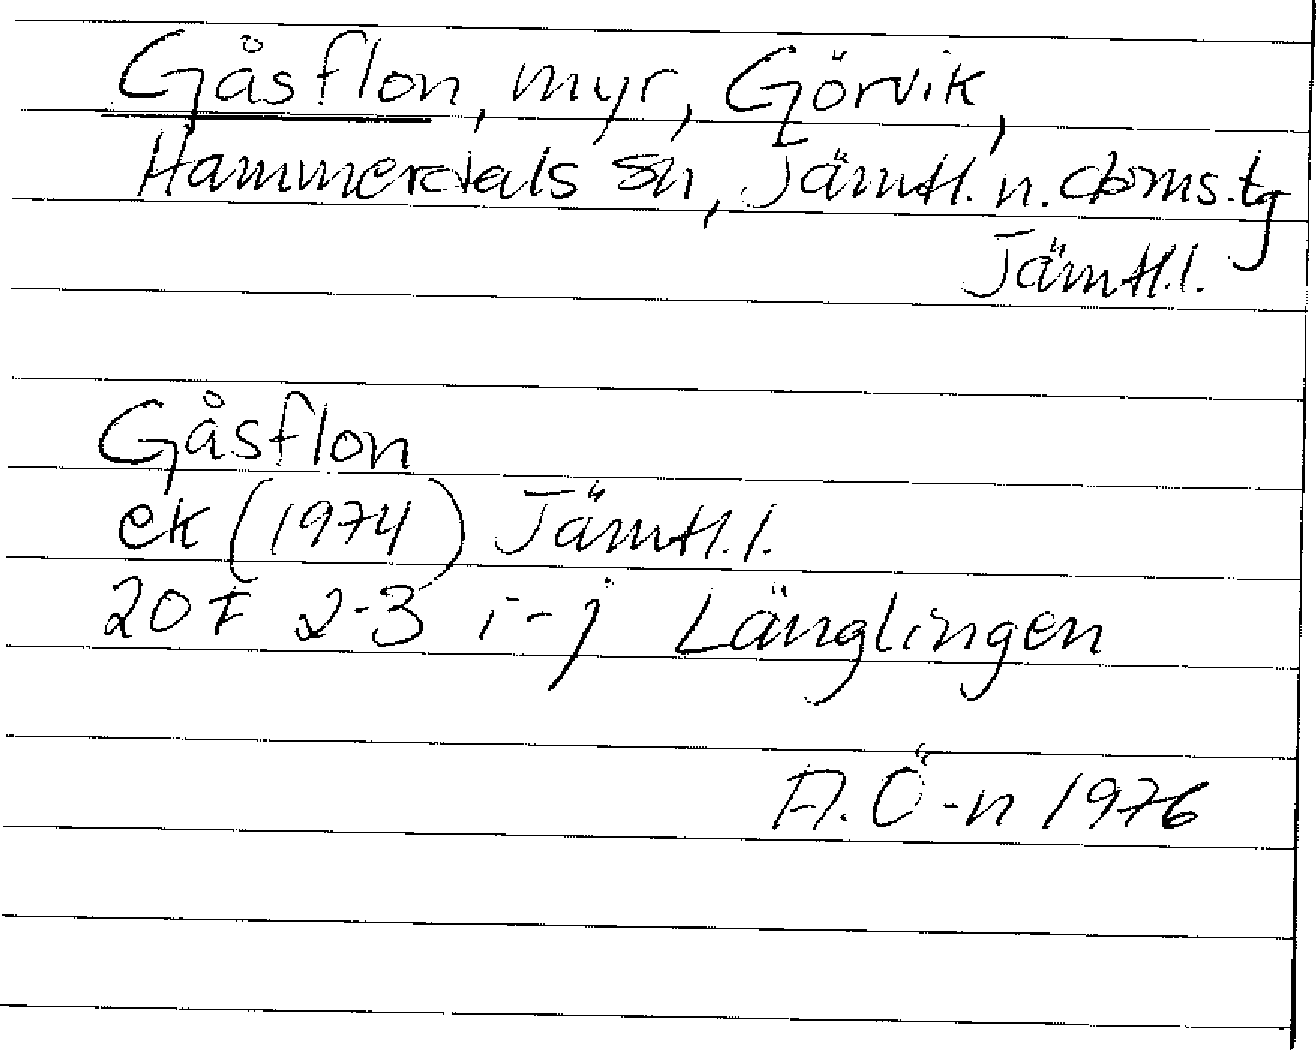 Gåsflon, myr, Görvik,
Hammerdals sn, Jämtl. n. doms. tg
Jämtl. l.
Gåsflon
ek (1974) Jämtl. l.
20 F 2-3 i-j Länglingen
A. Ö-n 1976